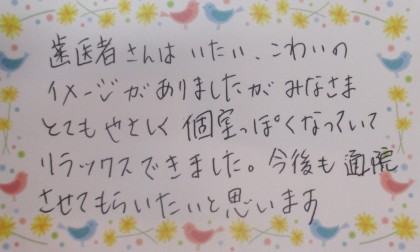 歯医者さんは いたい、こわいの
イメージがありましたが みなさま
とても やさしく 個室っぽくなっていて
リラックスできました。今後も 通院
させてもらいたいと思います